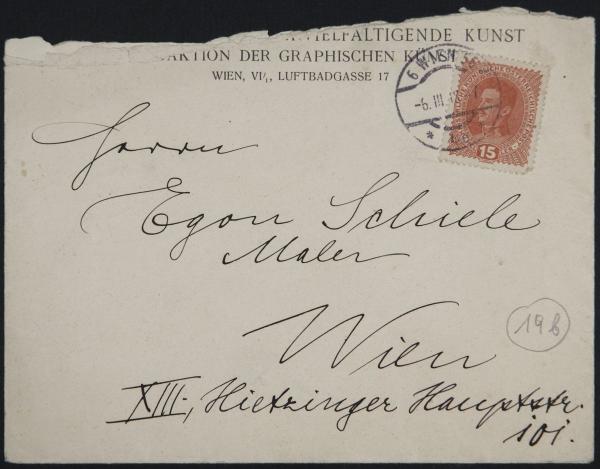 VIELFÄLTIGENDE KUNST
AKTION DER GRAPHISCHEN KÜNSTE
WIEN, VI/1, LUFTBADGASSE 17
6 WIEN
-6. III.
15
Herrn
Egon Schiele
Maler
Wien
XIII., Hietzinger Hauptstr.
101.
19b